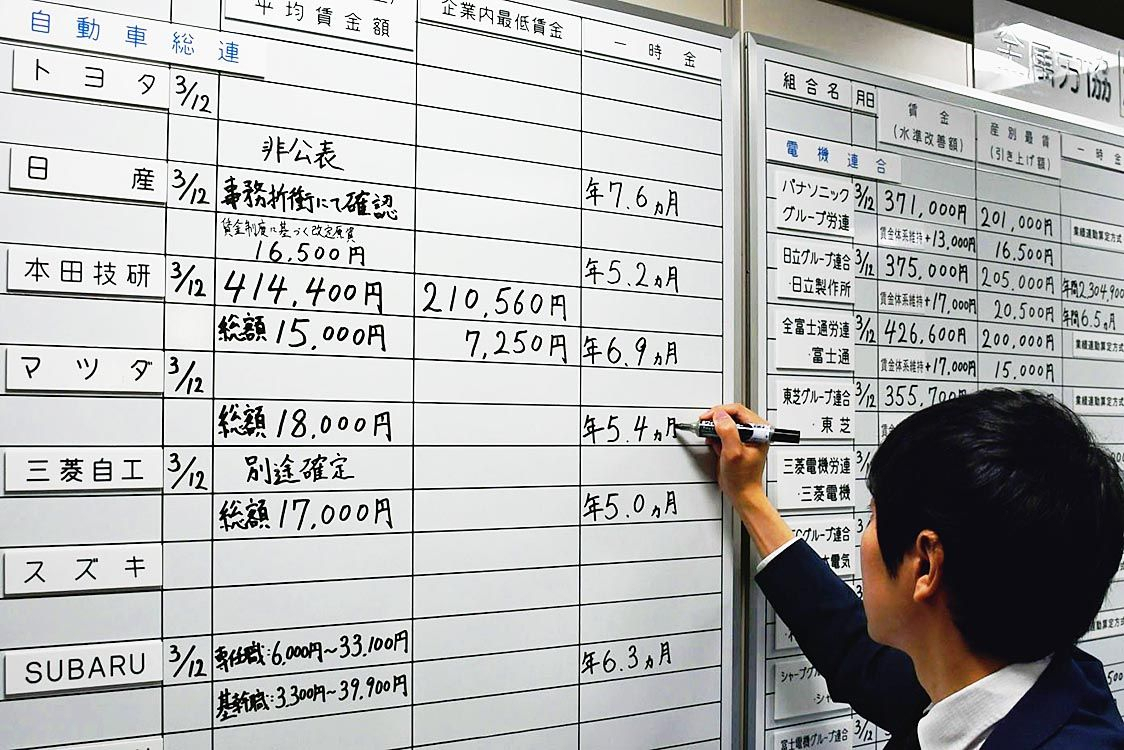 自動車総連
平均賃金額
企業内最低賃金
一時金
トヨタ 3/12
非公表
年7.6ヵ月
日産 3/12 事務折衝にて確認
賃金制度に基づく改定原資
16,500円
年5.2ヵ月
本田技研 3/12 414,400円 210,560円
総額15,000円 7,250円 年6.9ヵ月
マツダ 3/12
総額18,000円 年5.4ヵ月
三菱自工 3/12 別途確定
総額17,000円 年5.0ヵ月
スズキ
SUBARU 3/12 専任職:6,000円~33,100円 年6.3ヵ月
基幹職:3,300円~39,900円
金属労協
組合名 月日 賃金 産別最賃 一時金
(水準改善額) (引き上げ額)
電機連合
パナソニック 3/12 371,000円 201,000円
グループ労連 賃金体系維持+13,000円 16,500円 業績連動算定方式
日立グループ連合 3/12 375,000円 205,000円 年間2,304,900
・日立製作所 賃金体系維持+17,000円 20,500円 年間6.5ヵ月
全富士通労連 3/12 426,600円 200,000円 業績連動算定方式
・富士通 賃金体系維持+17,000円 15,000円
東芝グループ連合 3/12 355,700 業績連動算定方式
・東芝
三菱電機労連
・三菱電機
グループ連合
電気
シャープグループ
富士電機グループ連合